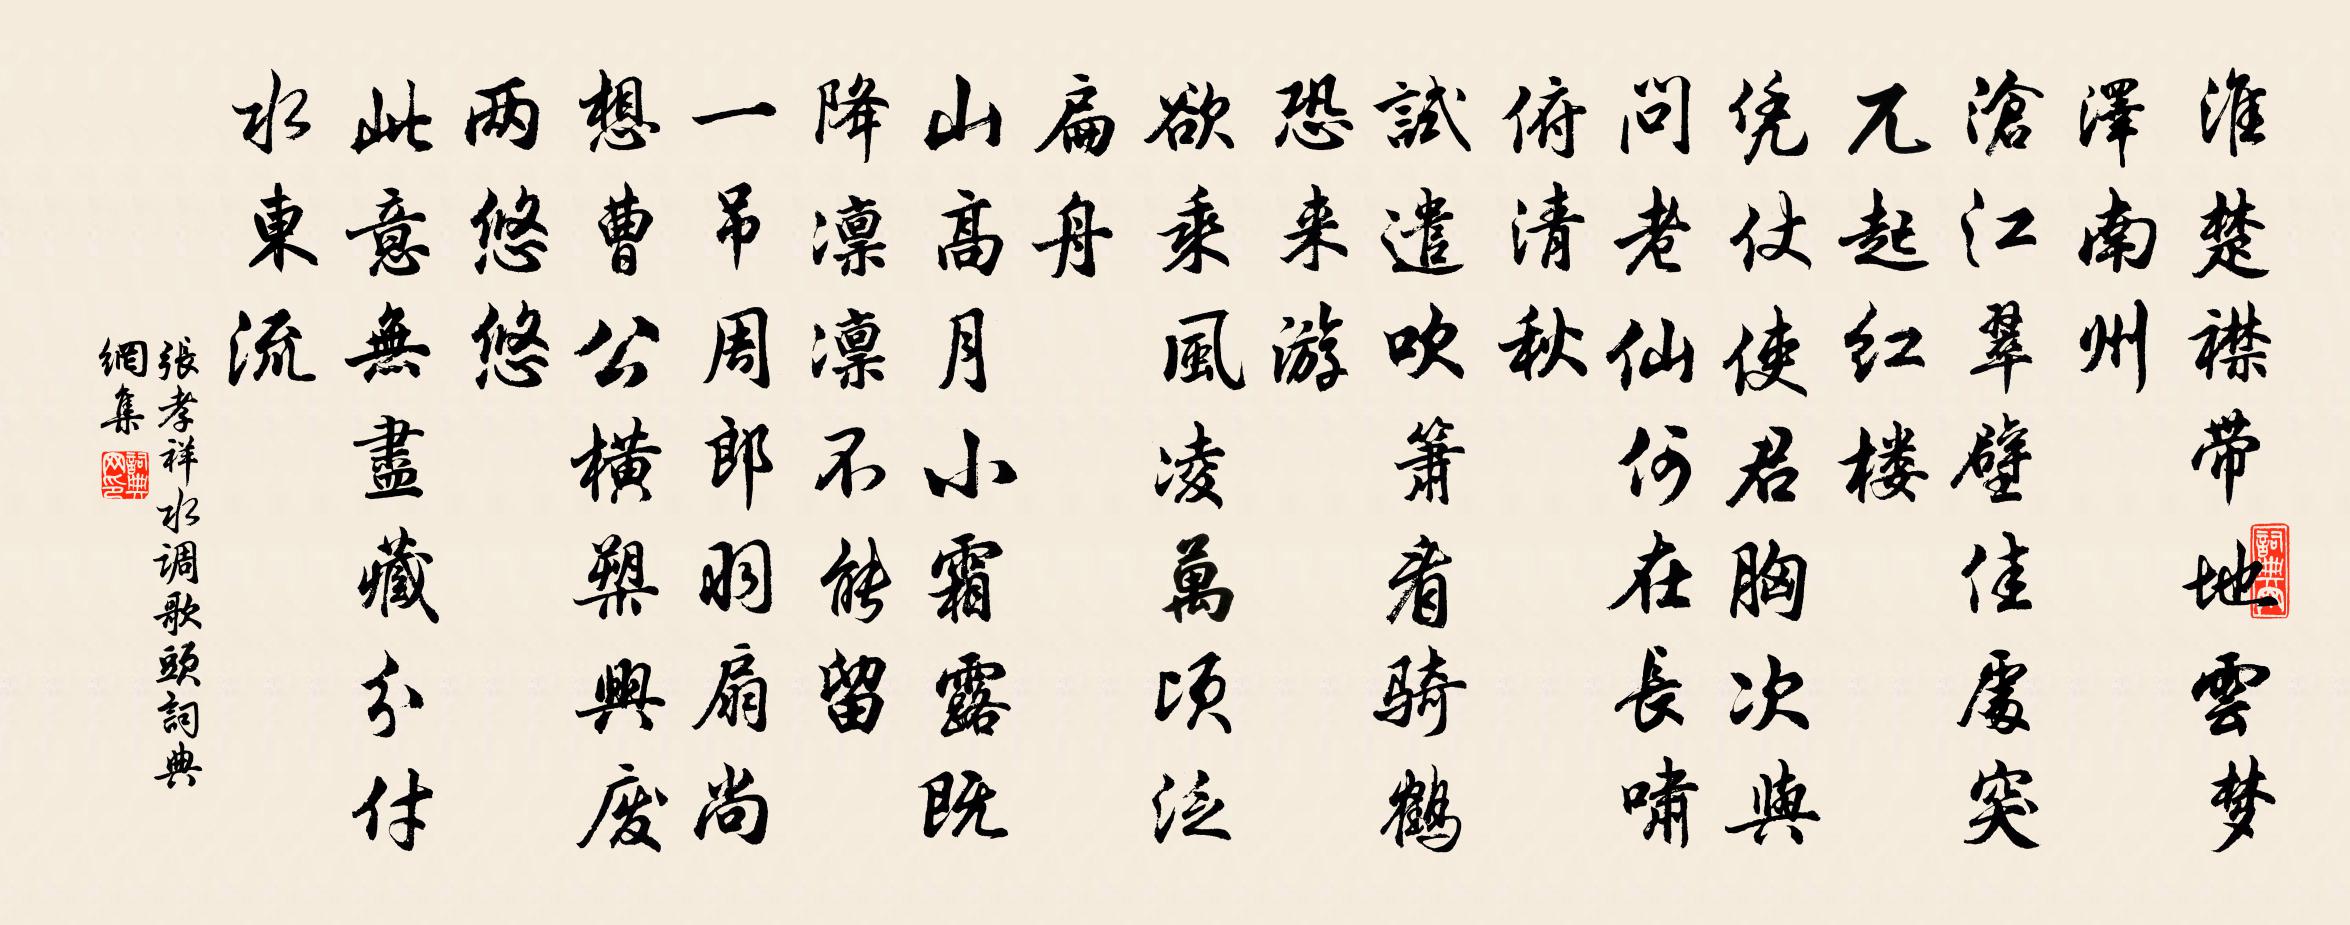 淮楚襟带地雲梦
澤南州
滄江翠壁佳處突
兀起红楼
凭仗使君胸次與
问老仙何在長啸
俯清秋
試遣吹箫看骑鶴
恐来游
欲乘風凌萬顷泛
扁舟
山高月小霜露既
降凛凛不能留
一吊周郎羽扇尚
想曹公横槊興废
两悠悠
此意無盡藏分付
水東流
張孝祥水调歌頭詞典
網集